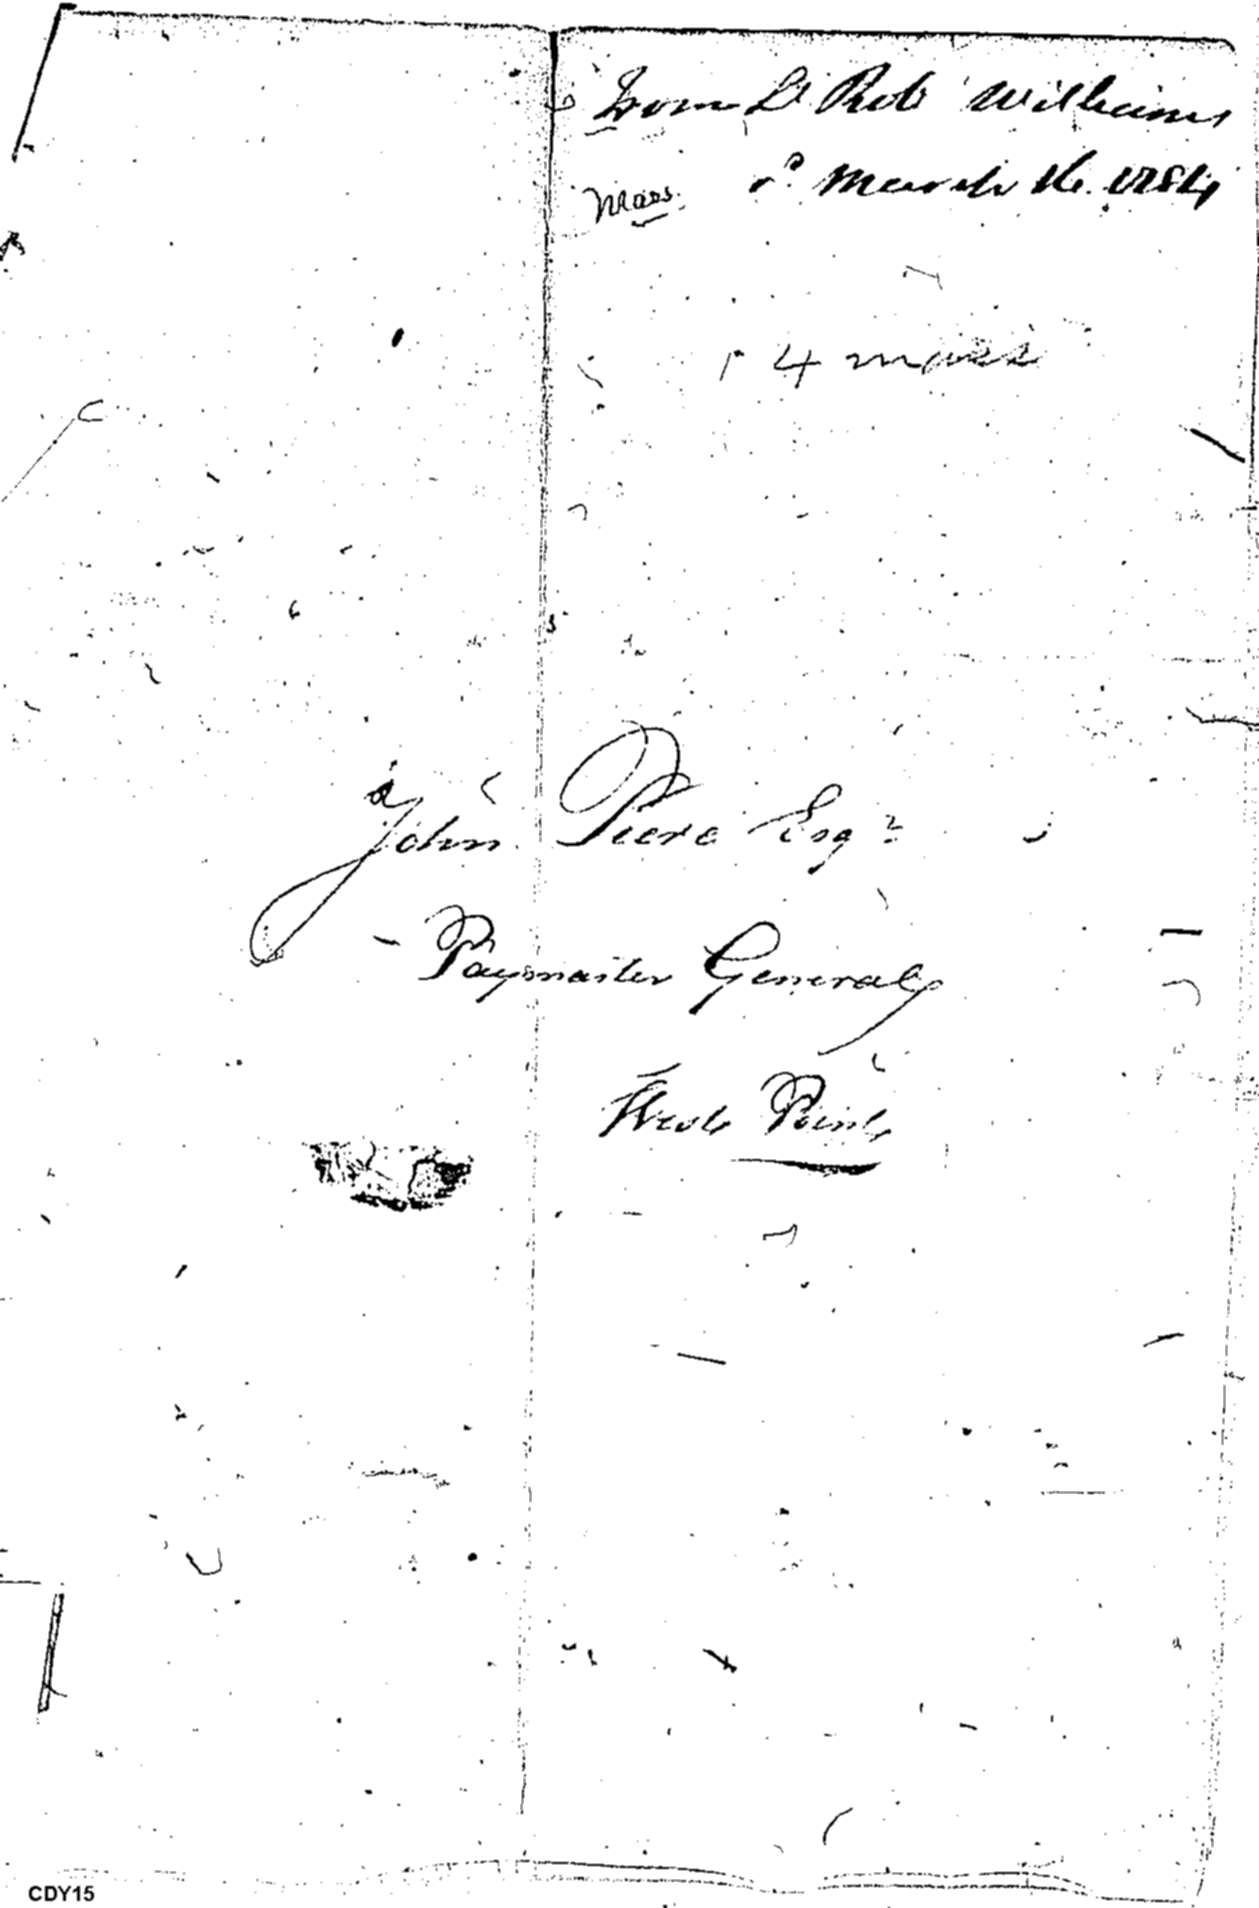 From Lt Rob Williams
Mass. March 16. 1784
4 mass
John Piere Esqr
Paymaster General
West Point
CDY15